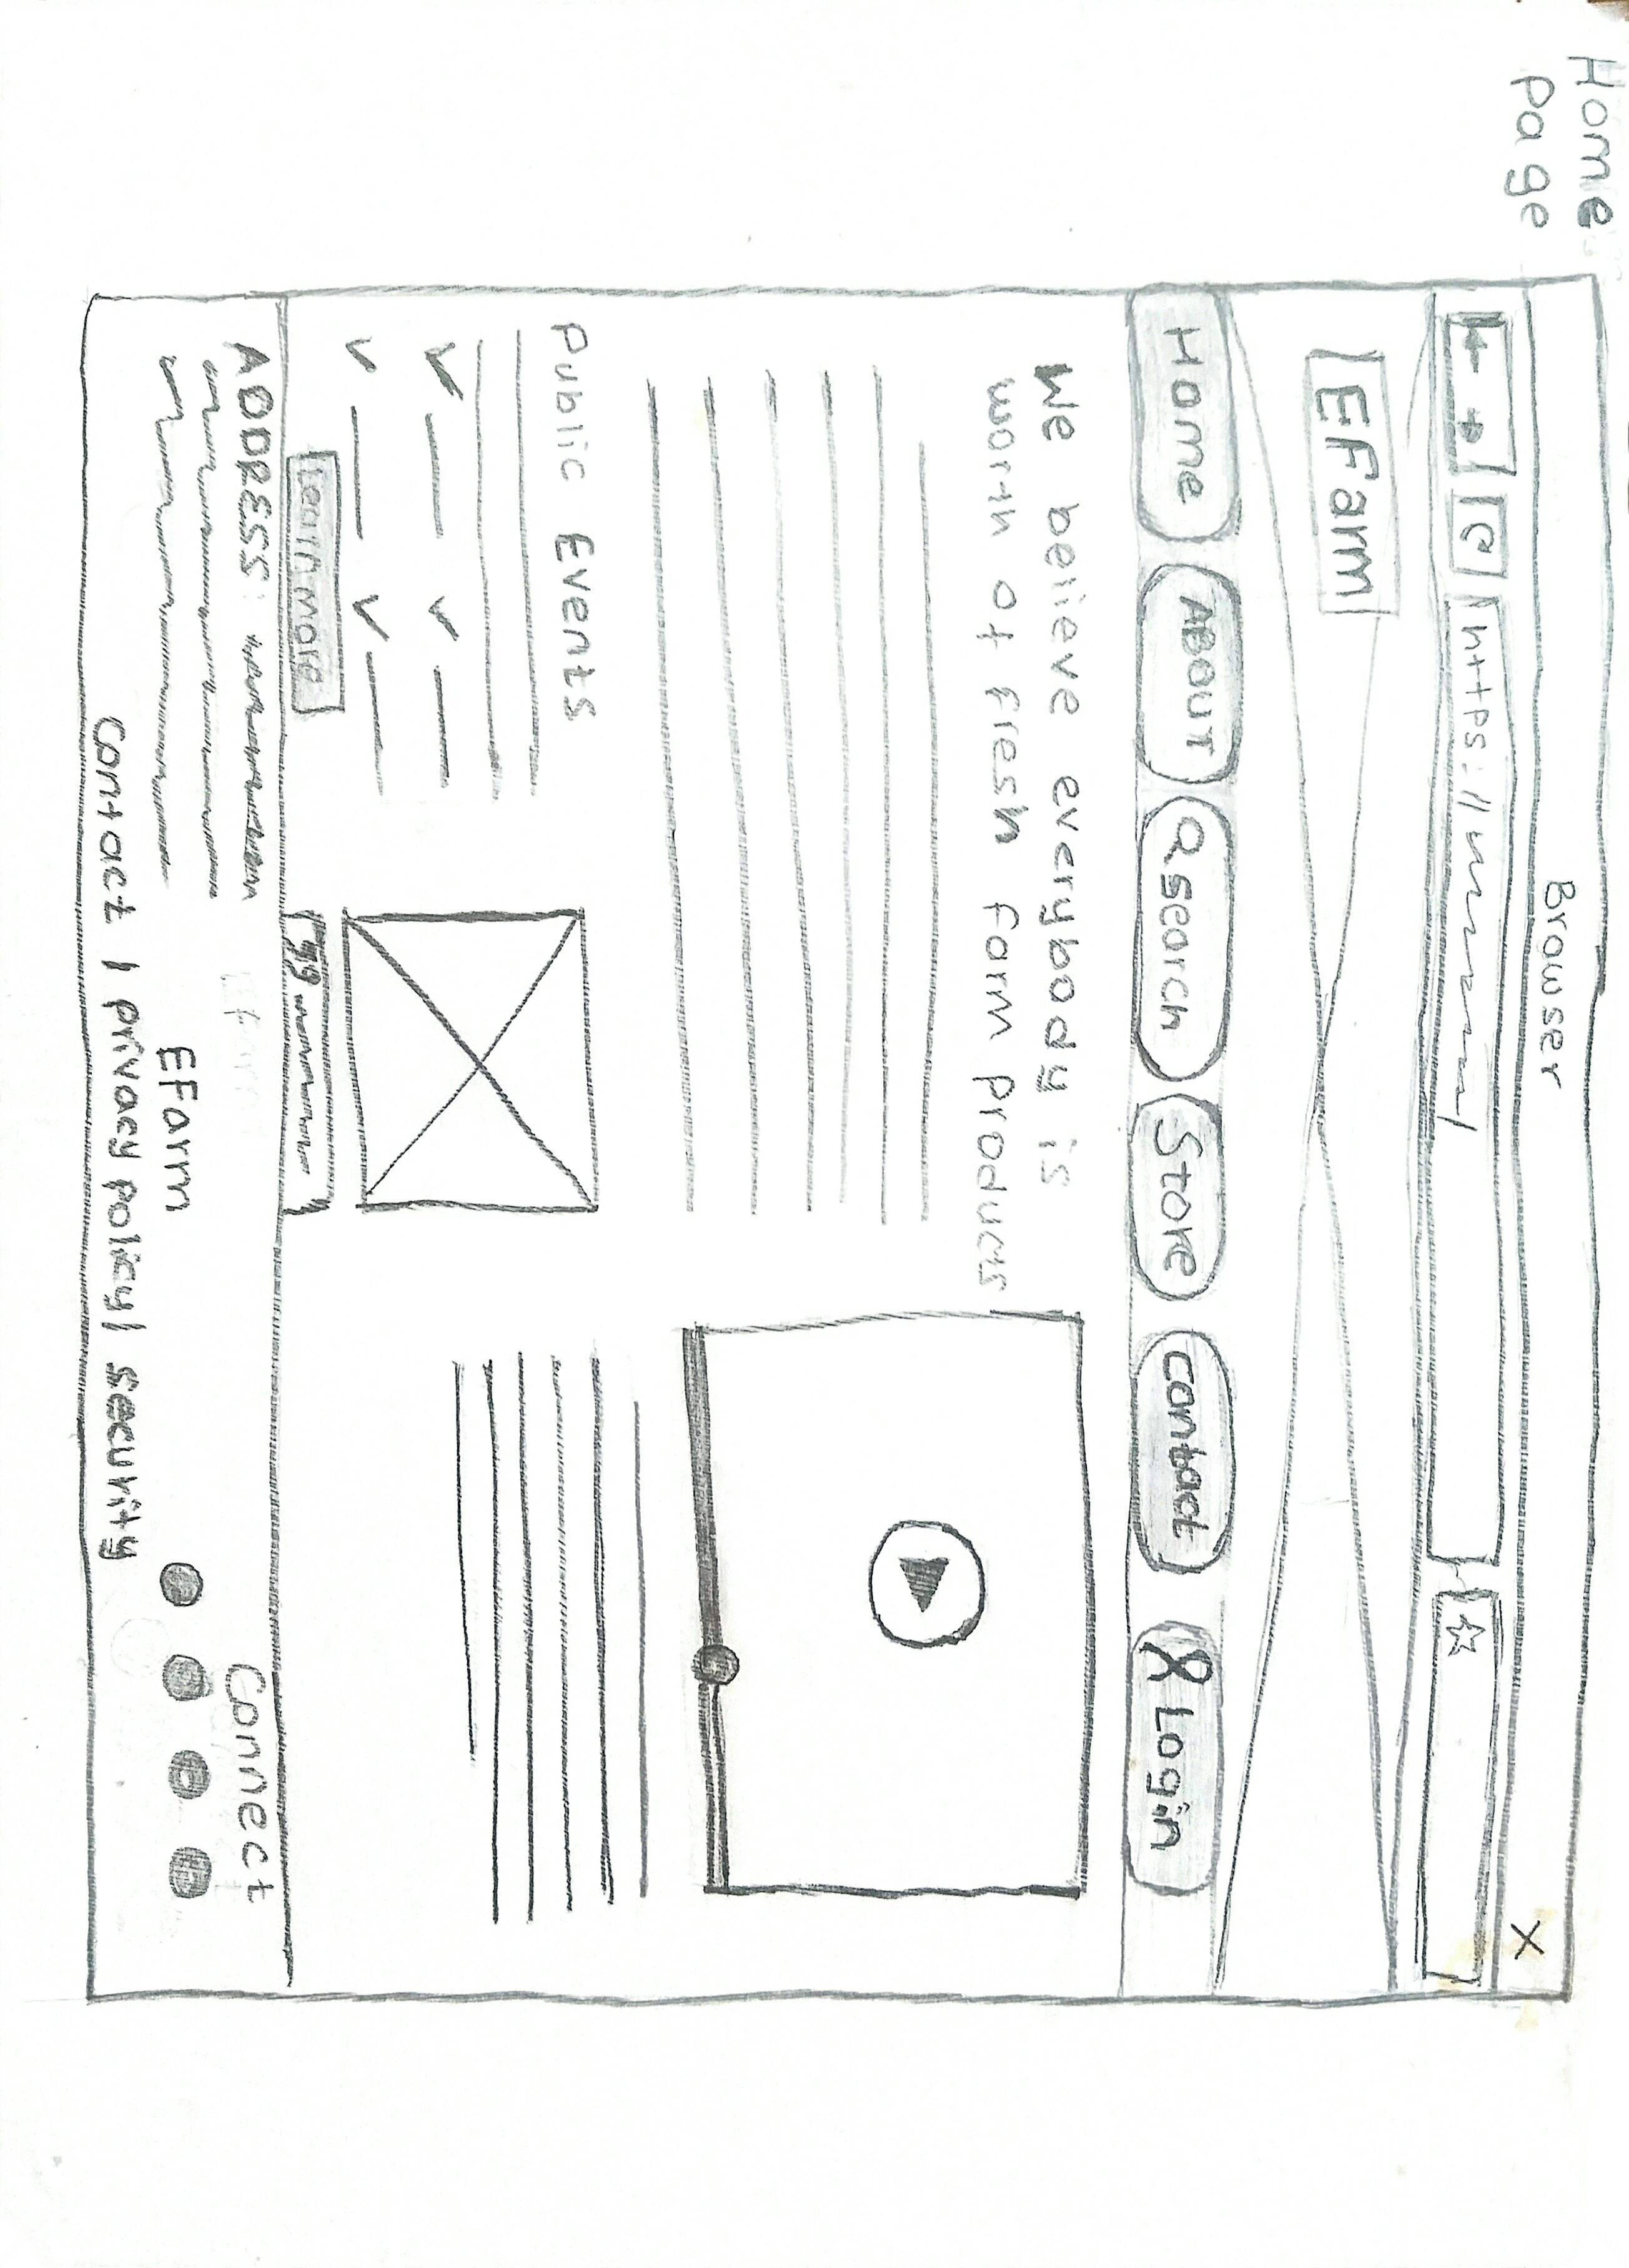 Home
page
Browser
X
https://
EFarm
Home
ABOUT
search
Store
contact
Login
We believe everybody is
worth of fresh farm products
Public Events
Learn more
ADDRESS:
Connect
EFarm
Contact | privacy policy | security